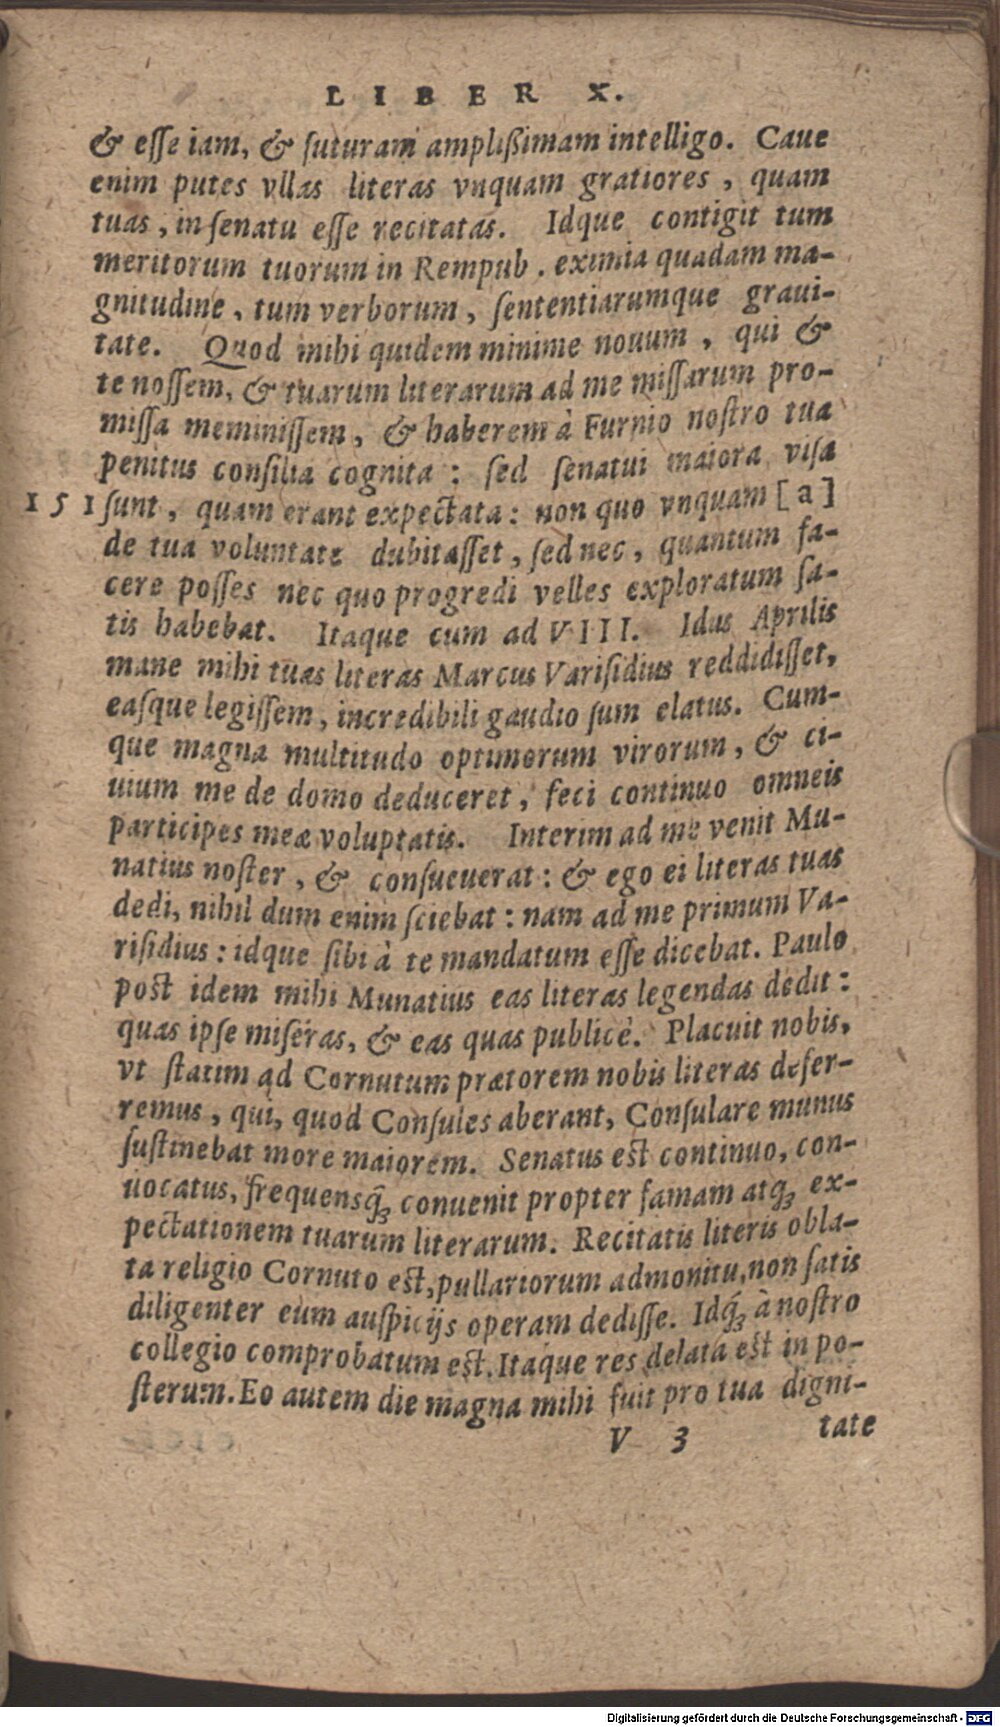 LIBER X.
& eſſe iam, & futuram ampliſsimam intelligo. Caue
enim putes vllas literas vnquam gratiores, quam
tuas, in ſenatu eſſe recitatas. Idque contigit tum
meritorum tuorum in Rempub. eximia quadam ma-
gnitudine, tum verborum, ſententiarumque graui-
tate. Quod mihi quidem minime nouum, qui &
te noſſem, & tuarum literarum ad me miſſarum pro-
miſſa meminiſſem, & haberem à Furnio noſtro tua
penitus conſilia cognita: ſed ſenatui maiora viſa
151 ſunt, quam erant expectata: non quo vnquam [a]
de tua voluntate dubitaſſet, ſed nec, quantum fa-
cere poſſes nec quo progredi velles exploratum ſa-
tis habebat. Itaque cum ad VIII. Idus Aprilis
mane mihi tuas literas Marcus Variſidius reddidiſſet,
eaſque legiſſem, incredibili gaudio ſum elatus. Cum-
que magna multitudo optimorum virorum, & ci-
uium me de domo deduceret, feci continuo omneis
participes meæ voluptatis. Interim ad me venit Mu-
natius noſter, & conſueuerat: & ego ei literas tuas
dedi, nihil dum enim ſciebat: nam ad me primum Va-
riſidius: idque ſibi à te mandatum eſſe dicebat. Paulo
poſt idem mihi Munatius eas literas legendas dedit:
quas ipſe miſeras, & eas quas publicè. Placuit nobis,
vt ſtatim ad Cornutum prætorem nobis literas defer-
remus, qui, quod Conſules aberant, Conſulare munus
ſuſtinebat more maiorem. Senatus eſt continuo, con-
uocatus, frequensq́ꝫ conuenit propter famam atqꝫ ex-
pectationem tuarum literarum. Recitatis literis obla-
ta religio Cornuto eſt, pullariorum admonitu, non ſatis
diligenter eum auſpicijs operam dediſſe. Idq́ꝫ à noſtro
collegio comprobatum eſt. Itaque res delata eſt in po-
ſterum. Eo autem die magna mihi fuit pro tua digni-
V 3 tate
Digitalisierung gefördert durch die Deutsche Forschungsgemeinschaft - DFG